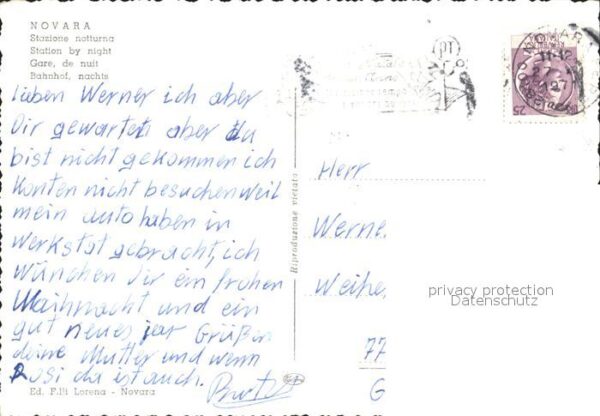 NOVARA
Stazione notturna
Station by night
Gare, de nuit
Bahnhof, nachts
lieben Werner ich aber
Dir gewartet aber du
bist nicht gekommen ich
Konten nicht besuchen weil
mein auto haben in
Werkstat gebracht, ich
wünchen Dir ein frohen
Waihnacht und ein
gut neues jar Grüßin
deine Mutter und wenn
Rosi da ist auch.
Ed. F.lli Lorena - Novara
Riproduzione vietata
PT
NOVARA
11-12
25
Herr
Werne
Weihe
77
G
privacy protection
Datenschutz